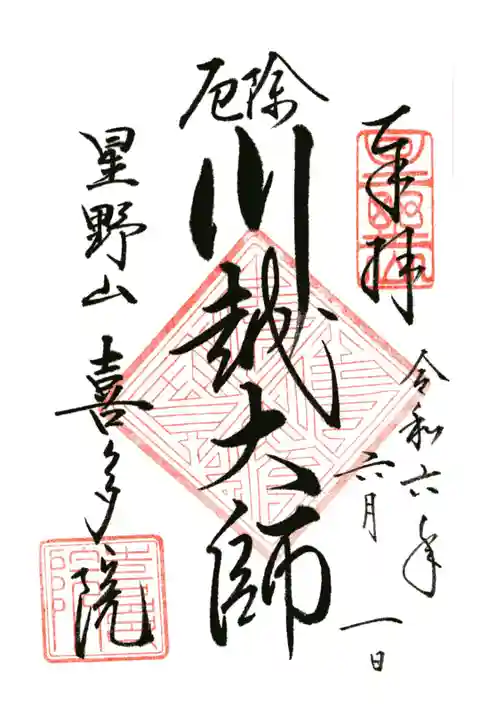 奉拝
令和六年
六月一日
厄除
川越大師
星野山
喜多院